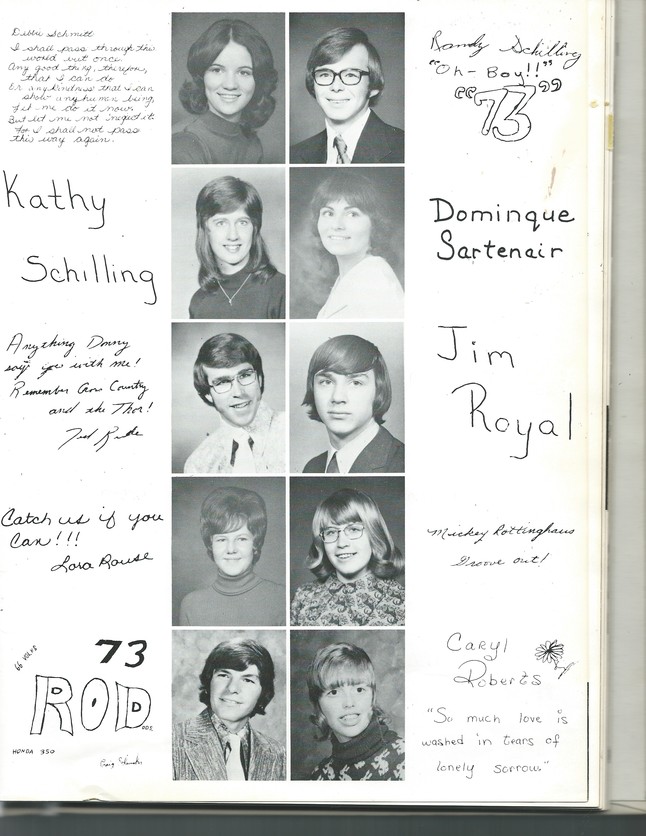 Debbi Schmitt
I shall pass through this
world but once.
Any good thing, therefore,
that I can do
Or any kindness that I can
show any human being,
Let me do it now.
But let me not neglect it
For I shall not pass
this way again.
Randy Schilling
"Oh-Boy!!"
"73"
Kathy
Schilling
Dominque
Sartenair
Anything Donny
says goes with me!
Remember Cross Country
and the Thor!
Ted
Jim
Royal
Catch us if you
Can!!!
Lora Rouse
Mickey Rottinghaus
Groove out!
73
66 VOLKS
ROD
HONDA 350
Craig
Caryl
Roberts
"So much love is
washed in tears of
lonely sorrow."